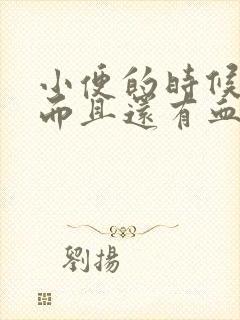 小便的時候
而且還有血
劉揚